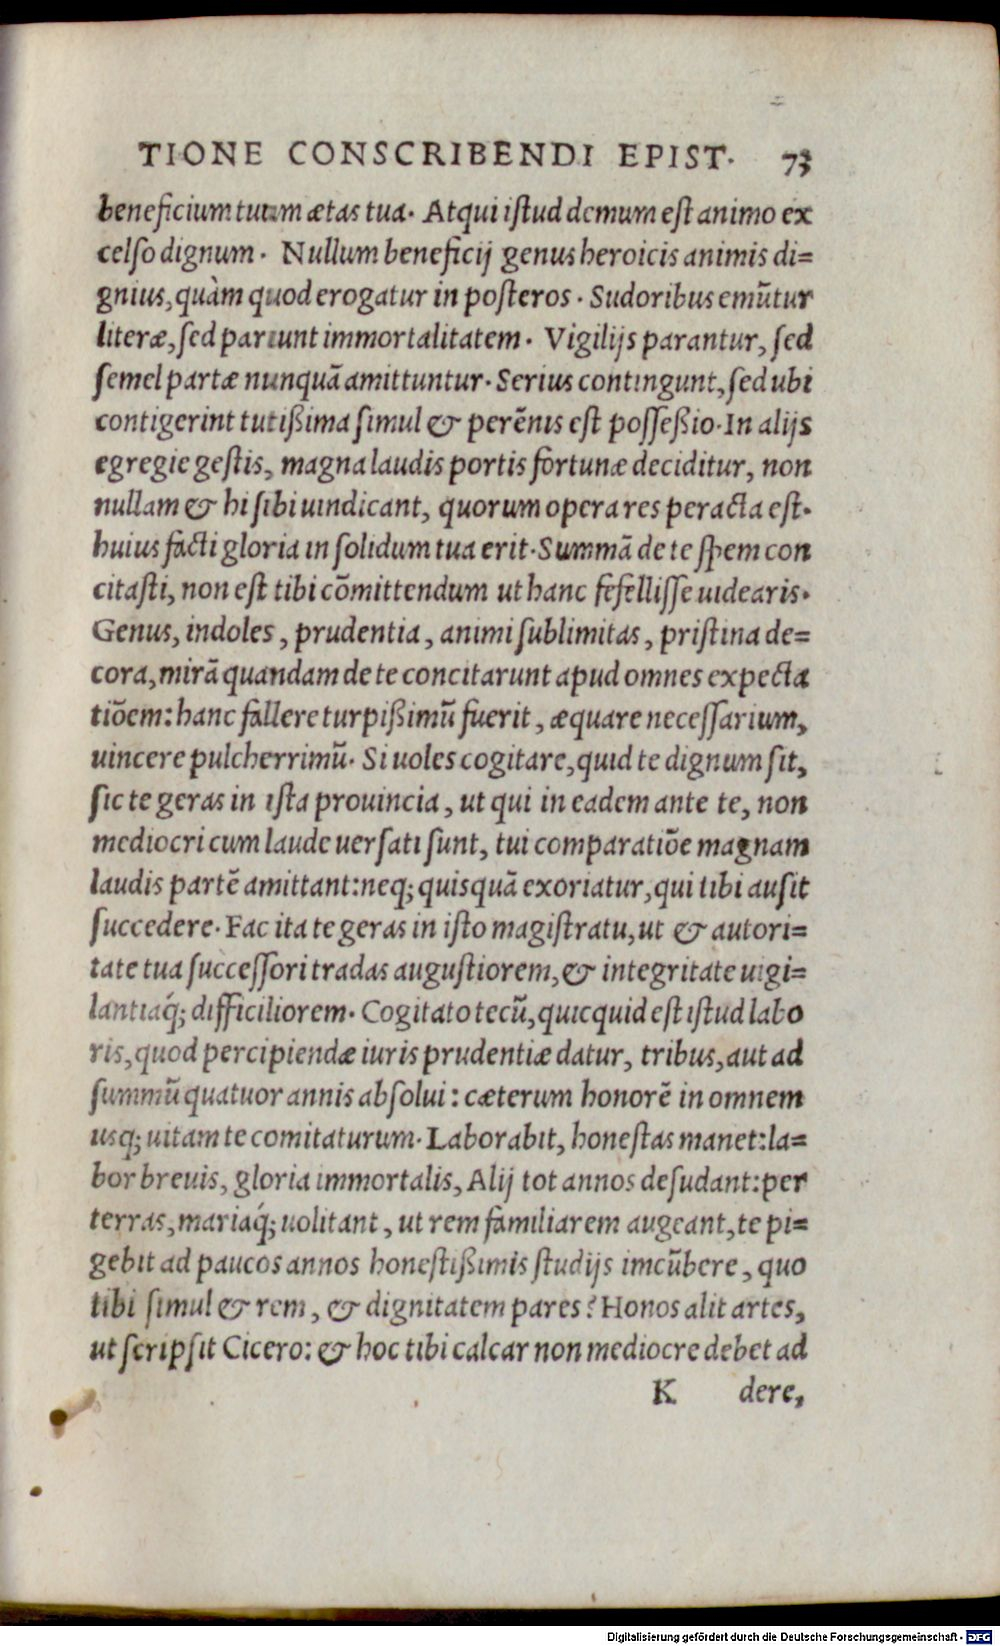 TIONE CONSCRIBENDI EPIST. 73
beneficium tuum ætas tua. Atqui iſtud demum eſt animo ex
celſo dignum. Nullum beneficij genus heroicis animis di=
gnius, quàm quod erogatur in poſteros. Sudoribus emũtur
literæ, ſed pariunt immortalitatem. Vigilijs parantur, ſed
ſemel partæ nunquã amittuntur. Serius contingunt, ſed ubi
contigerint tutißima ſimul & perẽnis eſt poſſeßio. In alijs
egregie geſtis, magna laudis portis fortunæ deciditur, non
nullam & hi ſibi uindicant, quorum opera res peracta eſt.
huius facti gloria in ſolidum tua erit. Summã de te ſpem con
citaſti, non eſt tibi cõmittendum ut hanc fefelliſſe uidearis.
Genus, indoles, prudentia, animi ſublimitas, priſtina de=
cora, mirã quandam de te concitarunt apud omnes expecta
tiõem: hanc fallere turpißimũ fuerit, æquare neceſſarium,
uincere pulcherrimũ. Si uoles cogitare, quid te dignum ſit,
ſic te geras in iſta prouincia, ut qui in eadem ante te, non
mediocri cum laude uerſati ſunt, tui comparatiõe magnam
laudis partẽ amittant: neq; quisquã exoriatur, qui tibi auſit
ſuccedere. Fac ita te geras in iſto magiſtratu, ut & autori=
tate tua ſucceſſori tradas auguſtiorem, & integritate uigi=
lantiaq́; difficiliorem. Cogitato tecũ, quicquid eſt iſtud labo
ris, quod percipiendæ iuris prudentiæ datur, tribus, aut ad
ſummũ quatuor annis abſolui: cæterum honorẽ in omnem
usq; uitam te comitaturum. Labor abit, honeſtas manet: la=
bor breuis, gloria immortalis, Alij tot annos deſudant: per
terras, mariaq́; uolitant, ut rem familiarem augeant, te pi=
gebit ad paucos annos honeſtißimis ſtudijs imcũbere, quo
tibi ſimul & rem, & dignitatem pares? Honos alit artes,
ut ſcripſit Cicero: & hoc tibi calcar non mediocre debet ad
K dere,
Digitalisierung gefördert durch die Deutsche Forschungsgemeinschaft - DFG